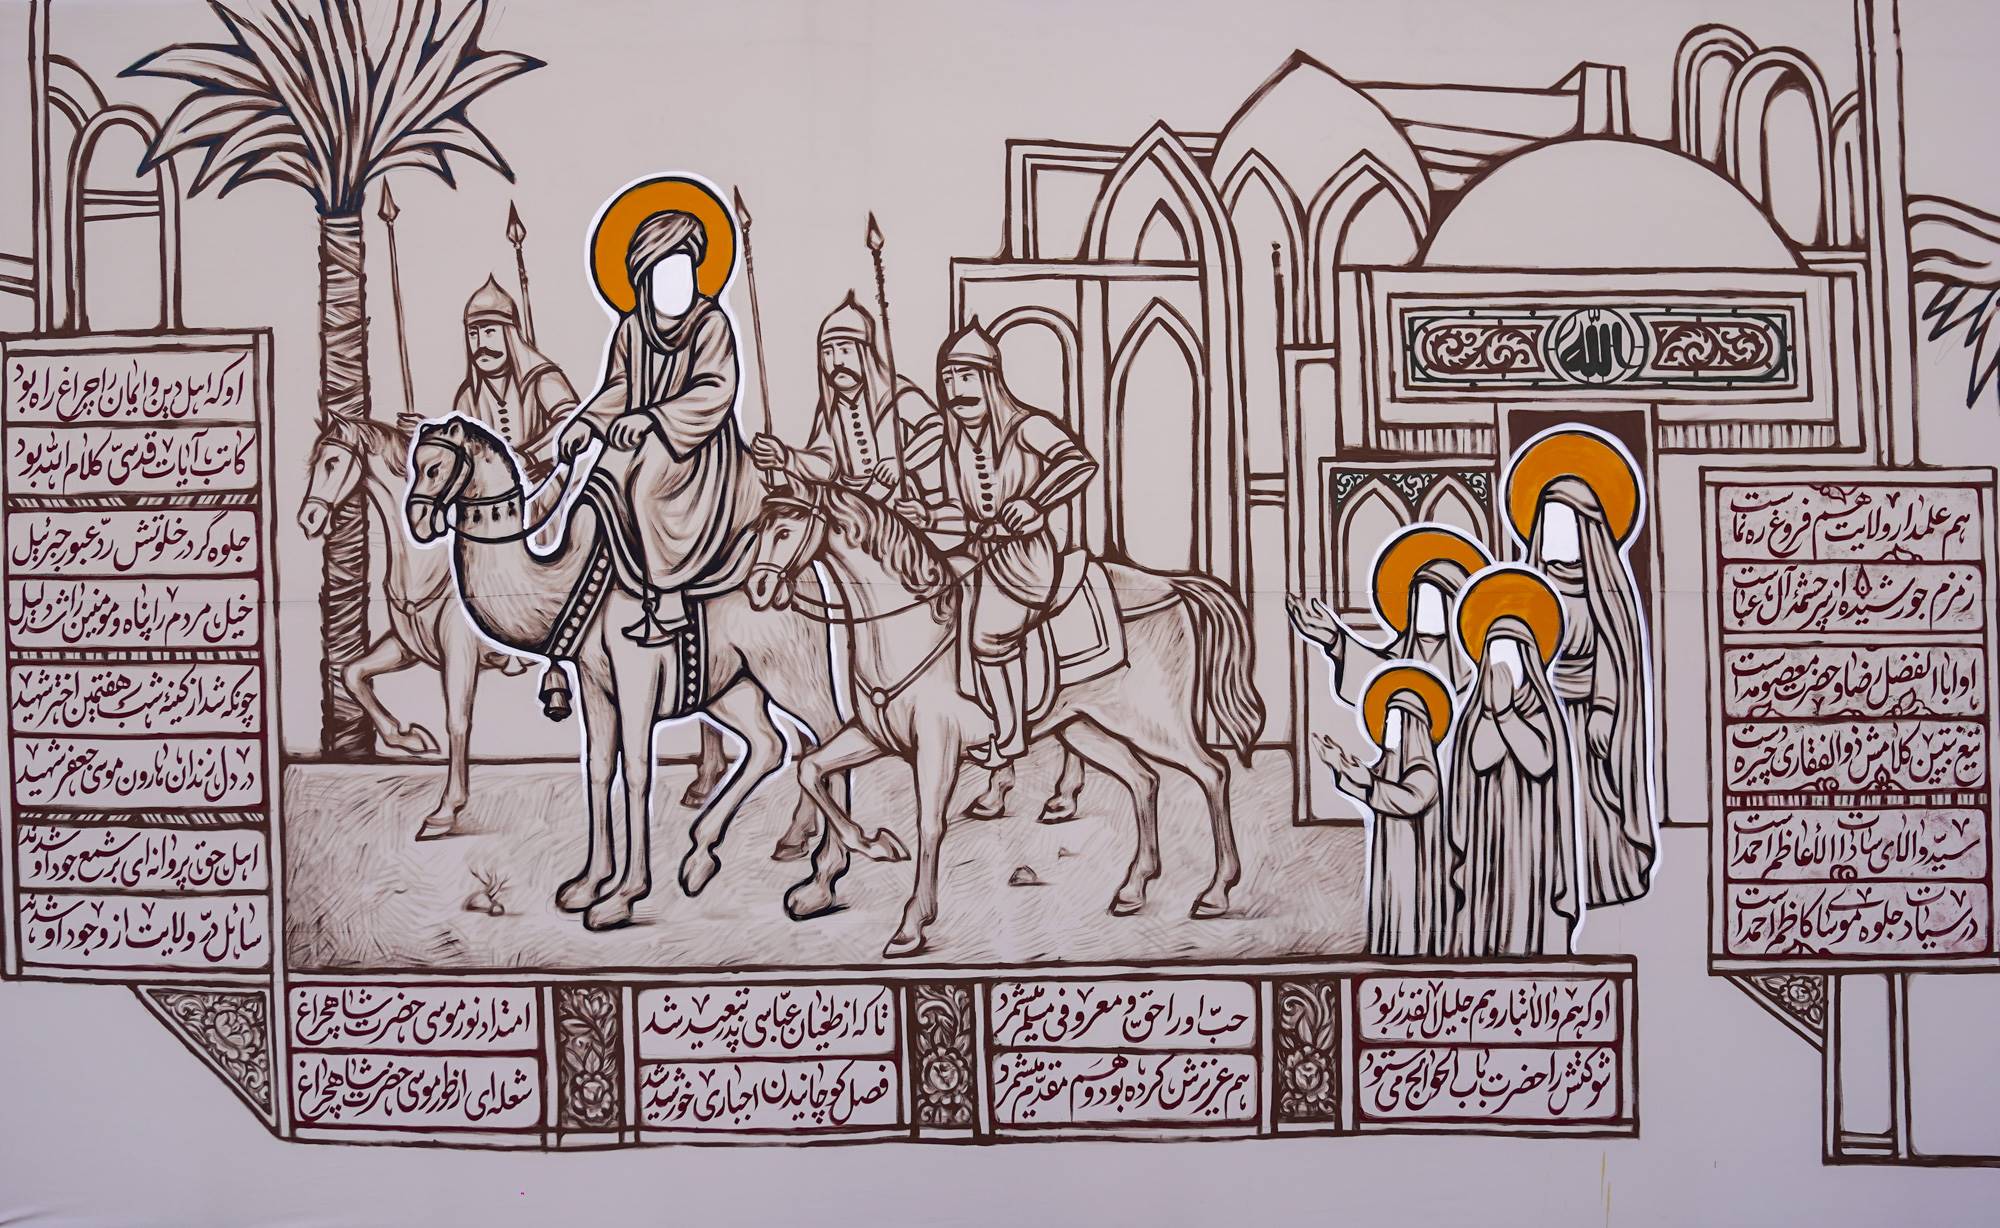 الله
هم علمدار ولایت هم فروغ ره نماست
زمزم جوشیده از سرچشمهٔ آل عباست
او اباالفضل رضا و حضرت معصومه است
تیغ تبیین کلامش ذوالفقاری چیره دست
سیّد والای سادات الاعاظم احمد است
در سیادت جلوه موسای کاظم احمد است
او که هم والاتبار و هم جلیل القدر بود
شوکتش را حضرت باب الحوائج می ستود
حبّ او را حقّ و معروفی مسلم میشمرد
هم عزیزش کرده بود و هم مقدّم میشمرد
تا که از طغیان عبّاسی پدر تبعید شد
فصل کوچانیدن اجباری خورشید شد
امتداد نور موسی حضرت شاهچراغ
شعله ای از طور موسی حضرت شاهچراغ
او که اهل دین و ایمان را چراغ راه بود
کاتب آیات قدسیّ کلام الله بود
جلوه گر در خلوتش ردّ عبور جبرئیل
خیل مردم را پناه و مومنین را شد دلیل
چونکه شد از کینهٔ شب هفتمین اختر شهید
در دل زندان هارون موسی جعفر شهید
اهل حق پروانه ای بر شمع جود او شدند
سائل درّ ولایت از وجود او شدند